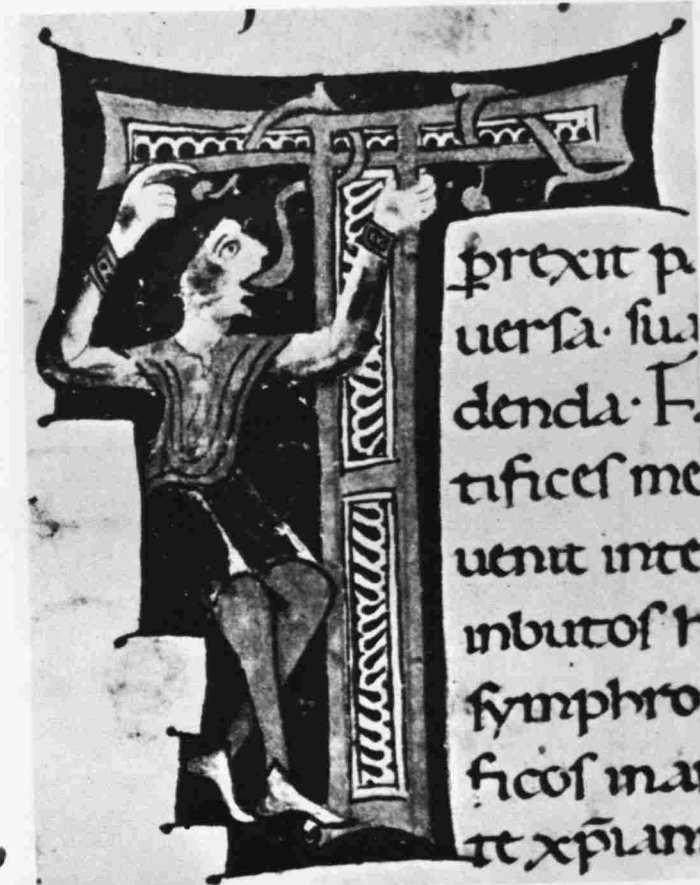 T
prexit p
uersa. sua
denda. F
tifices me
uenit inte
inbutos h
symphro
ficos mar
te xp̄ian